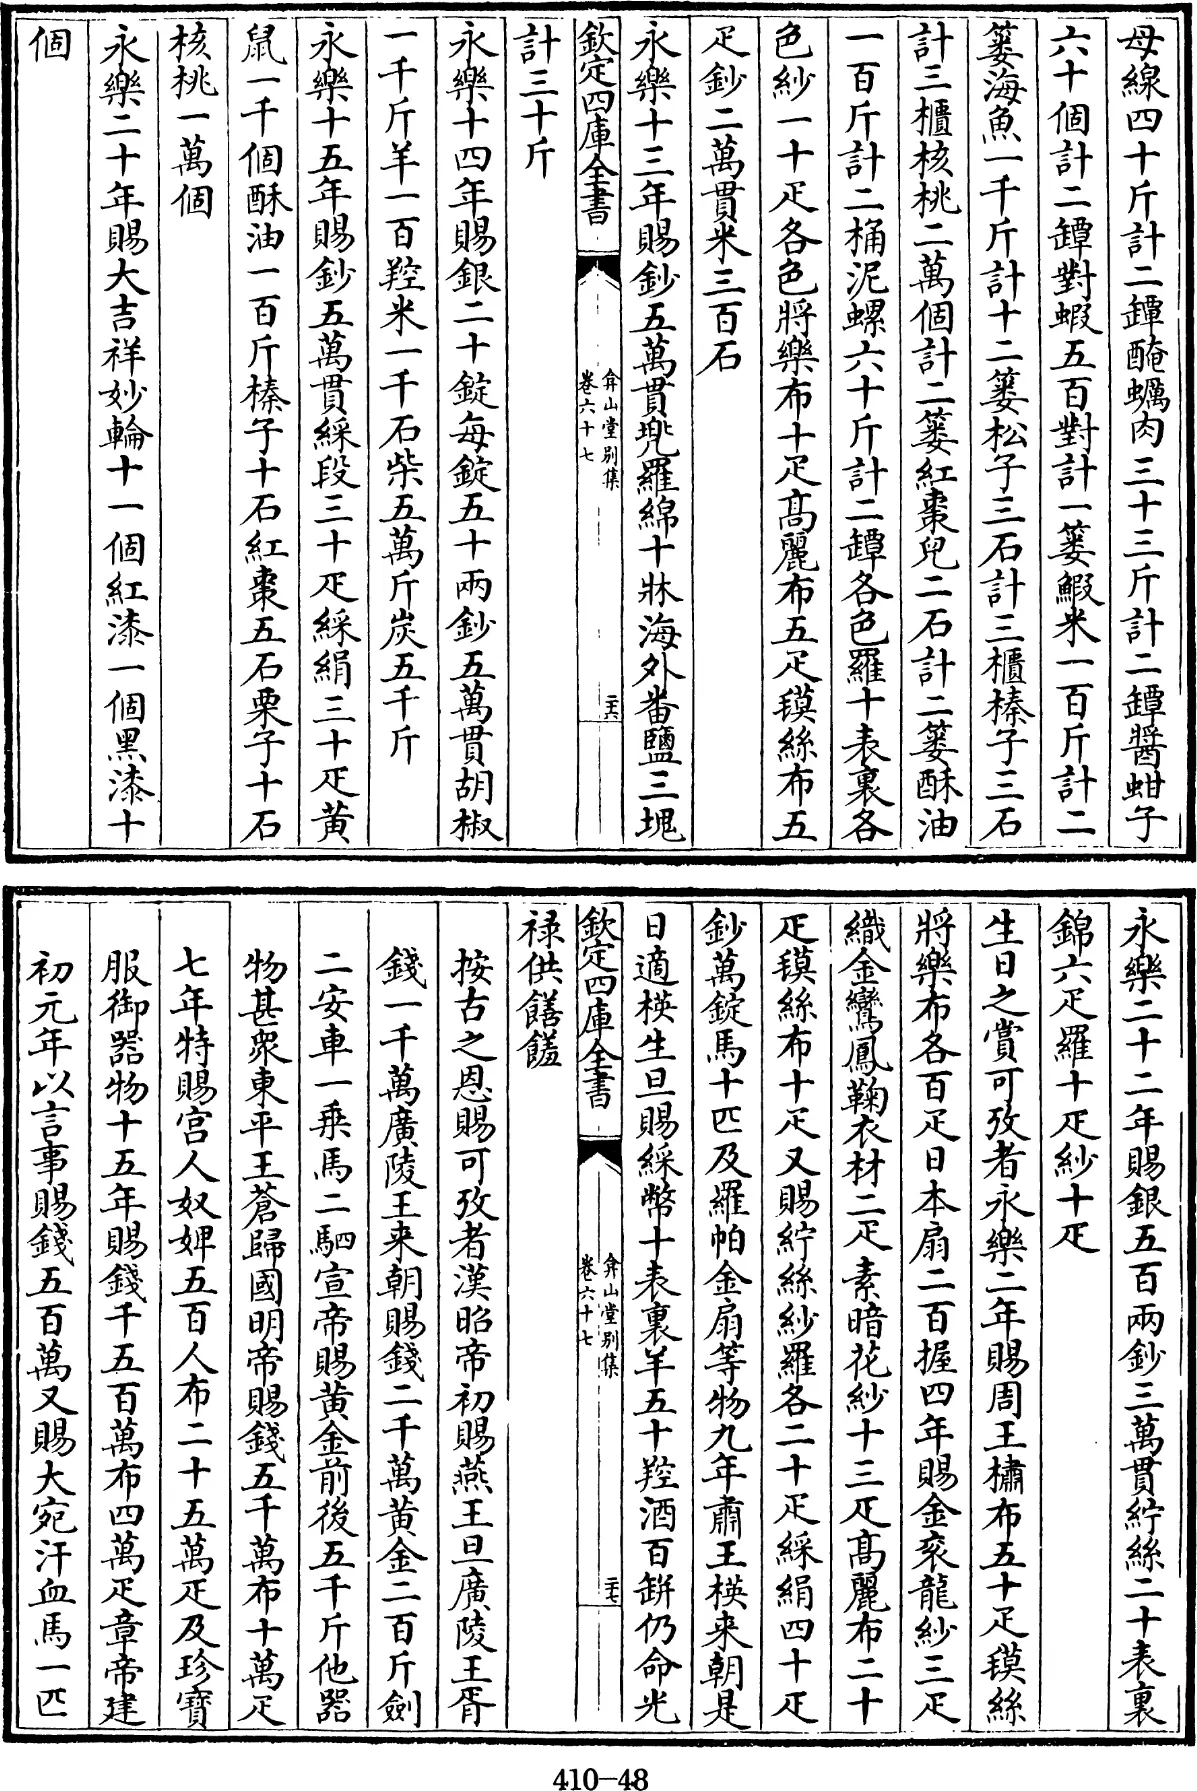 母線四十斤計二罈醃蠣肉三十三斤計二罈醬蚶子
六十個計二罈對蝦五百對計一簍鰕米一百斤計二
簍海魚一千斤計十二簍松子三石計三櫃榛子三石
計三櫃核桃二萬個計二簍紅棗兒二石計二簍酥油
一百斤計二桶泥螺六十斤計二罈各色羅十表裏各
色紗一十疋各色將樂布十疋髙麗布五疋䤚絲布五
疋鈔二萬貫米三百石
永樂十三年賜鈔五萬貫兠羅綿十牀海外畨鹽三塊
欽定四庫全書
弇山堂别集
卷六十七
二六
計三十斤
永樂十四年賜銀二十錠每錠五十兩鈔五萬貫胡椒
一千斤羊一百羫米一千石柴五萬斤炭五千斤
永樂十五年賜鈔五萬貫綵段三十疋綵絹三十疋黄
鼠一千個酥油一百斤榛子十石紅棗五石栗子十石
核桃一萬個
永樂二十年賜大吉祥妙輪十一個紅漆一個黑漆十
個
永樂二十二年賜銀五百兩鈔三萬貫紵絲二十表裏
錦六疋羅十疋紗十疋
生日之賞可攷者永樂二年賜周王橚布五十疋䤚絲
將樂布各百疋日本扇二百握四年賜金衮龍紗三疋
織金鸞鳳鞠衣材二疋素暗花紗十三疋髙麗布二十
疋䤚絲布十疋又賜紵絲紗羅各二十疋綵絹四十疋
鈔萬錠馬十匹及羅帕金扇等物九年肅王楧来朝是
日適楧生旦賜綵幣十表裏羊五十羫酒百缾仍命光
欽定四庫全書
弇山堂别集
卷六十七
二七
禄供饍饈
按古之恩賜可攷者漢昭帝初賜燕王旦廣陵王胥
錢一千萬廣陵王来朝賜錢二千萬黄金二百斤劍
二安車一乗馬二駟宣帝賜黄金前後五千斤他器
物甚衆東平王蒼歸國明帝賜錢五千萬布十萬疋
七年特賜宫人奴婢五百人布二十五萬疋及珍寶
服御器物十五年賜錢千五百萬布四萬疋章帝建
初元年以言事賜錢五百萬又賜大宛汗血馬一匹
410-48